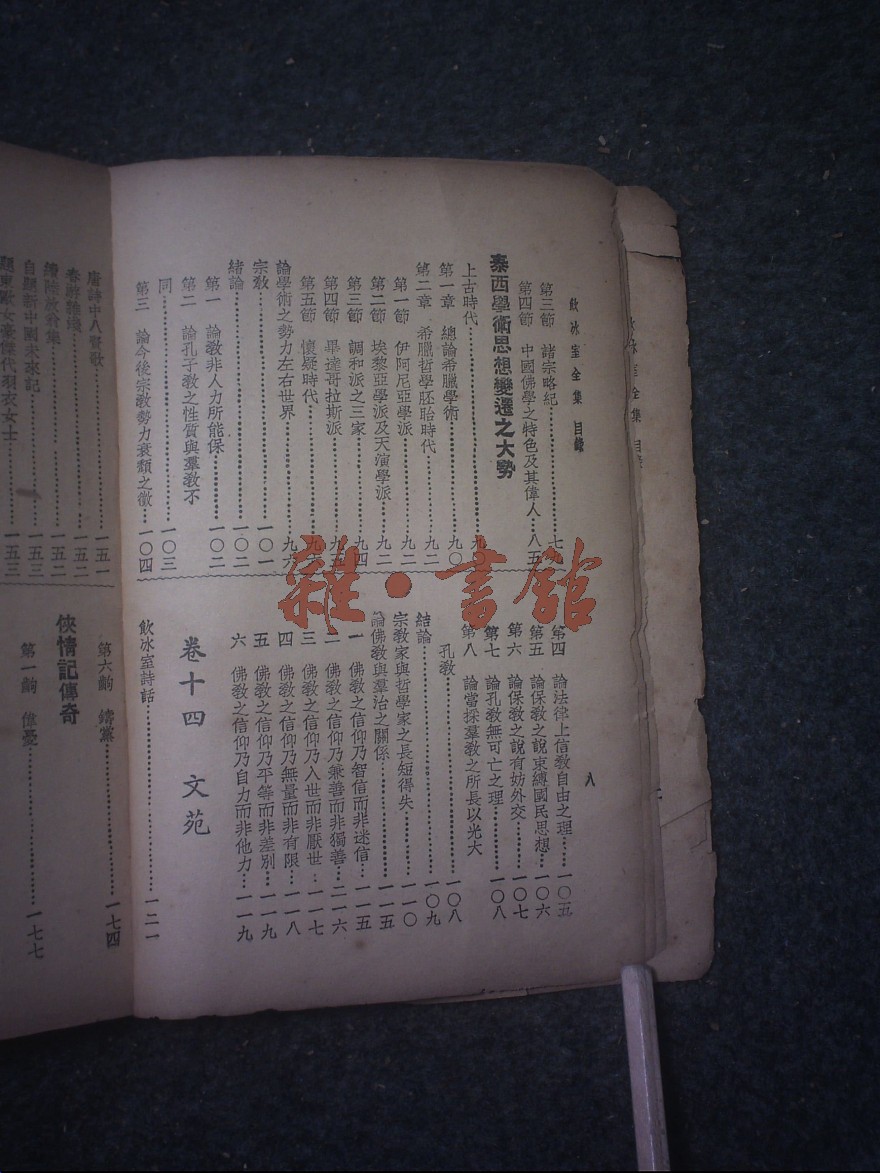 飲冰室全集 目錄
八
第三節 諸宗略紀……七
第四節 中國佛學之特色及其偉人…八五
泰西學術思想變遷之大勢
上古時代……九
第一章 總論希臘學術……九〇
第二章 希臘哲學胚胎時代……九二
第一節 伊阿尼亞學派……九二
第二節 埃黎亞學派及天演學派…九二
第三節 調和派之三家……九四
第四節 畢達哥拉斯派……九五
第五節 懷疑時代……九六
論學術之勢力左右世界……九六
宗教……一〇一
緒論……一〇二
第一 論教非人力所能保……一〇二
第二 論孔子教之性質與羣教不
同……一〇三
第三 論今後宗教勢力衰頹之徵…一〇四
第四 論法律上信教自由之理……一〇五
第五 論保教之說束縛國民思想…一〇六
第六 論保教之說有妨外交……一〇七
第七 論孔教無可亡之理……一〇八
第八 論當採羣教之所長以光大
孔教……一〇八
結論……一〇九
宗教家與哲學家之長短得失……一一〇
論佛教與羣治之關係……一一五
一 佛教之信仰乃智信而非迷信…一一五
二 佛教之信仰乃兼善而非獨善…二一六
三 佛教之信仰乃入世而非厭世…一一七
四 佛教之信仰乃無量而非有限…一一八
五 佛教之信仰乃平等而非差別…一一九
六 佛教之信仰乃自力而非他力…一一九
卷十四 文苑
飲冰室詩話……一二一
雜·書館
飲冰室全集 目
唐詩中八賢歌……一五一
一五二
一五二
自題新中國未來記……一五三
一五三
第六齣 鑄黨……一七四
俠情記傳奇
第一齣 偉憂……一七七